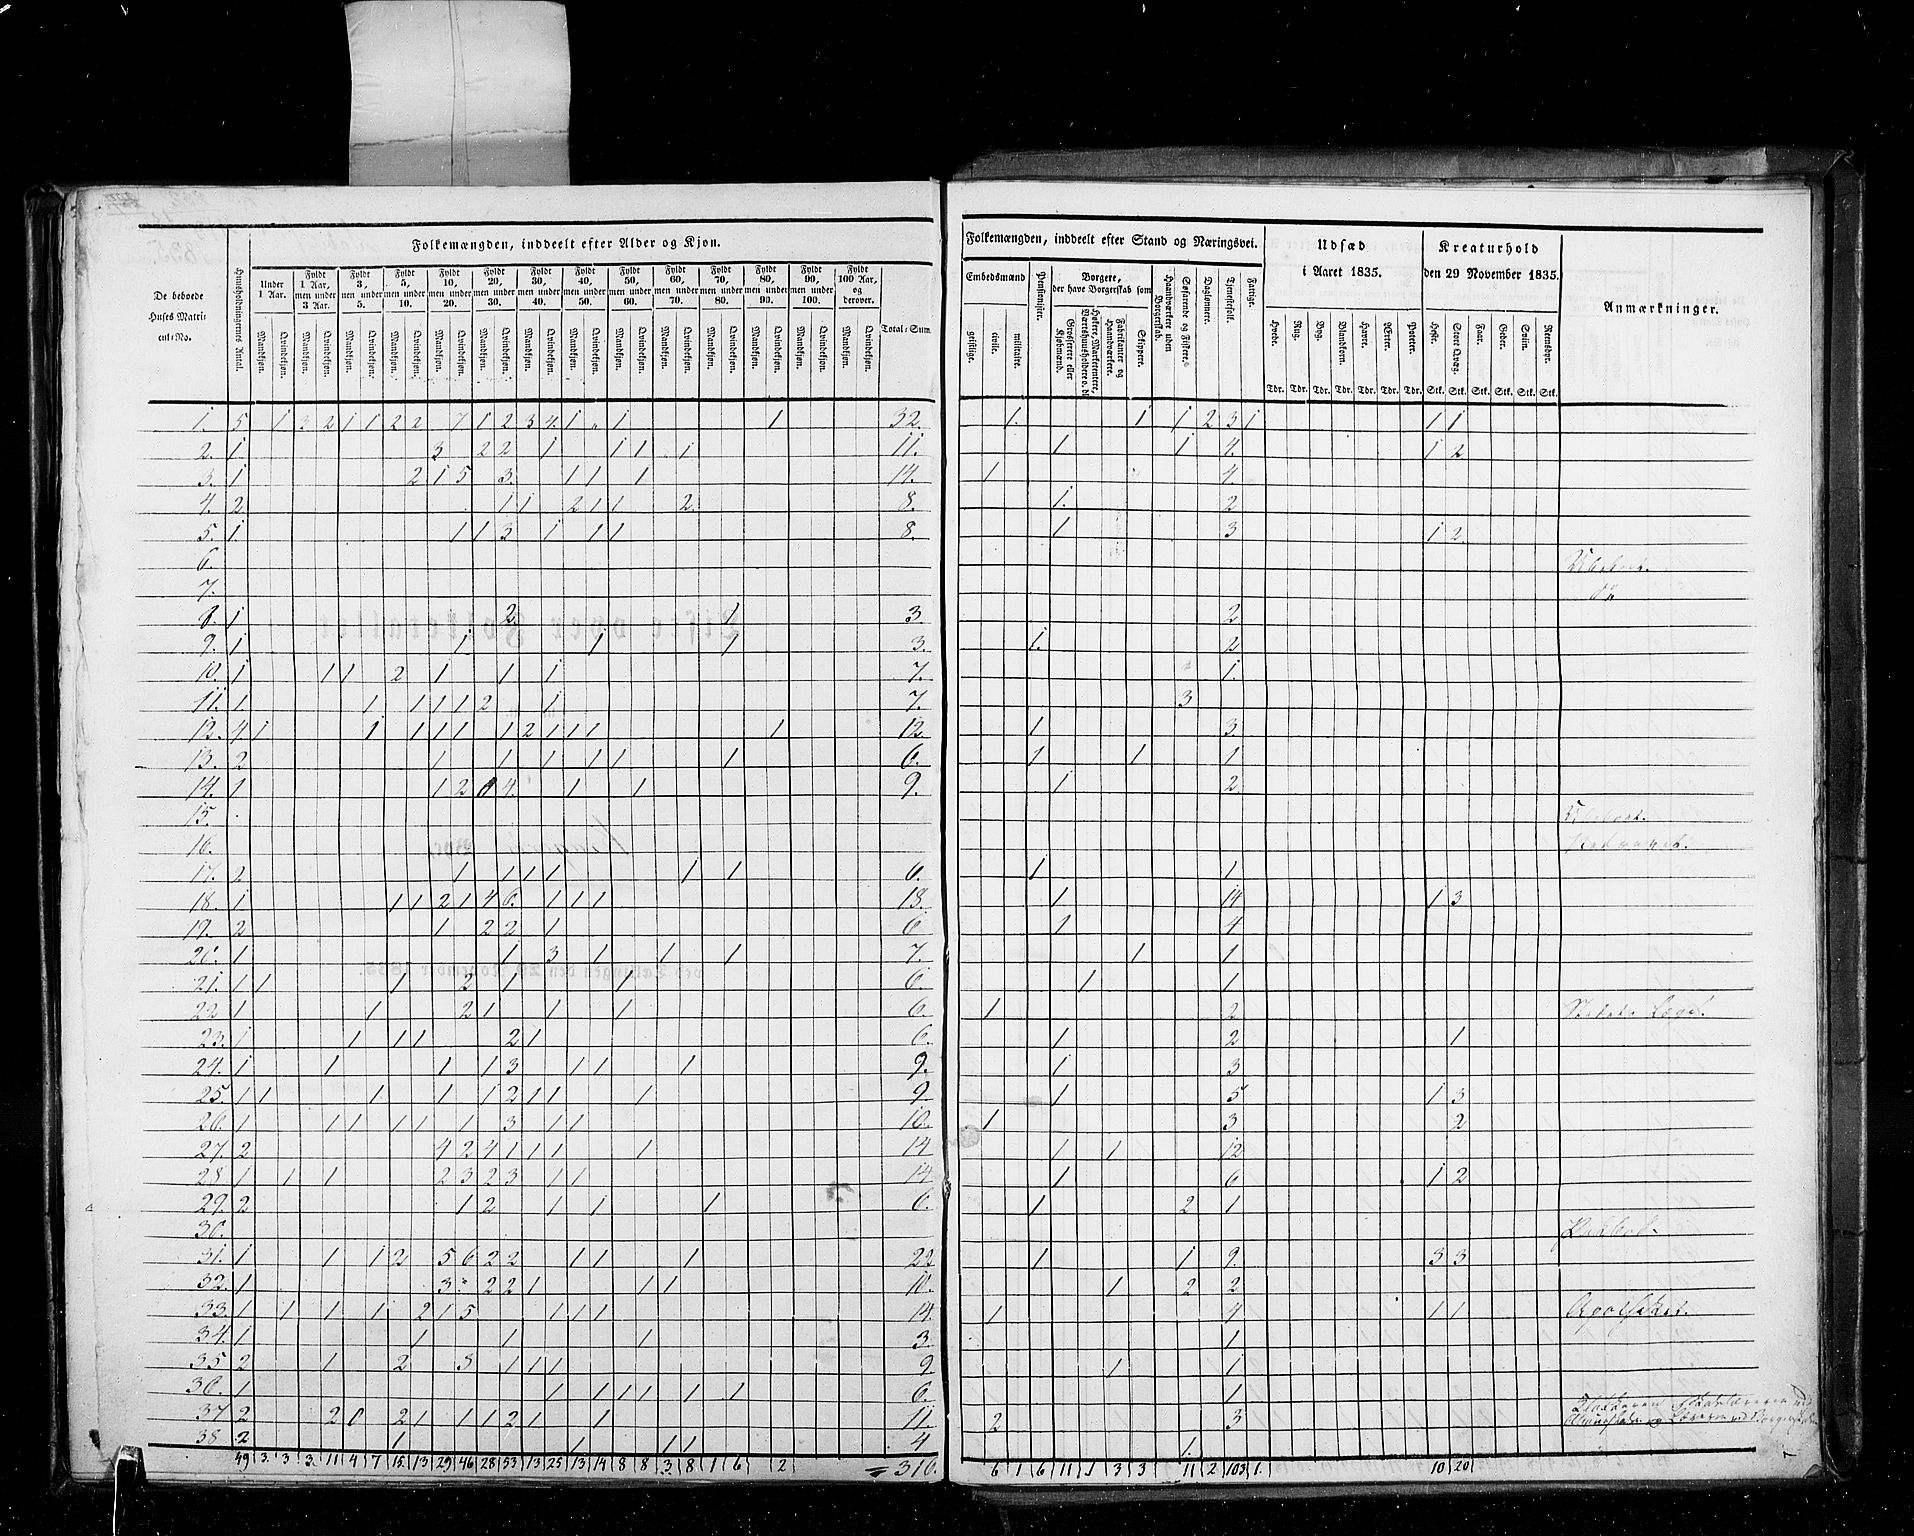 Folkemængden, inddeelt efter Alder og Kjøn.
De beboede Huses Matricul-No.
Huusholdningernes Antal.
Under 1 Aar.
Fyldt 1 Aar, men under 3 Aar.
Fyldt 3, men under 5.
Fyldt 5, men under 10.
Fyldt 10, men under 20.
Fyldt 20, men under 30.
Fyldt 30, men under 40.
Fyldt 40, men under 50.
Fyldt 50, men under 60.
Fyldt 60, men under 70.
Fyldt 70, men under 80.
Fyldt 80, men under 90.
Fyldt 90, men under 100.
Fyldt 100 Aar, og derover.
Total-Sum.
Mandkjøn. Qvindekjøn.
1. 5 1 2 2 1 1 2 2 7 1 2 3 4 1 1 1 32
2. 1 3 2 2 1 1 1 1 11.
3. 1 2 1 5 3. 1 1 1 14.
4. 2 1 1 2 1 1 2. 8.
5. 1 1 1 3 1 1 1 8.
6.
7.
8. 1 2 1 3
9. 1 1 1 1 3.
10. 1 1 1 2 1 1 1 7.
11. 1 1 1 1 1 2 1 7.
12. 4 1 1 1 1 1 1 2 1 1 1 1 12
13. 2 1 1 1 1 1 1 6.
14. 1 1 2 4. 1 1 9.
15.
16.
17. 2 1 1 1 1 1 1 6.
18. 1 1 1 2 1 4 6. 1 1 1 18.
19. 2 1 2 2 1 6
20. 1 1 3 1 1 1 7.
21. 1 1 1 2 1 1 6.
22 1 1 2 1 1 1 6.
23. 1 1 1 1 2 1 6.
24. 1 1 1 1 3 1 1 1 9.
25. 1 1 1 1 1 2 1 1 1 9
26. 1 1 1 1 1 1 3 1 1 10.
27. 2 4 2 4 1 1 1 1 14
28 1 1 1 2 3 2 3 1 1 14
29. 2 1 2 1 1 1 6.
30.
31. 1 1 1 2 5 6 2 2 1 1 1 22
32. 1 3 2 2 1 1 1 10.
33. 1 1 1 1 2 1 5 1 1 1 14.
34. 1 1 1 1 3.
35 2 1 2 3 1 1 1 9
36. 1 1 1 1 1 1 1 6.
37 2 2 0 2 1 1 1 2 1 1 11
38 2 1 1 1 1 4
49 3. 3 3. 11 4 7 15 13 29 46 28 53 13 25 13 14 8 8 3. 8 1 6 2 = 310.
Folkemængden, inddeelt efter Stand og Næringsvei.
Embedsmænd
geistlige.
civile.
militaire.
Pensionister.
Borgere, der have Borgerskab som
Grosserere eller Kjøbmænd.
Høkere, Marketentere, Værtshuusholdere o. dl.
Fabrikanter og Haandværkere.
Skippere.
Haandværkere uden Borgerskab.
Søfarende og Fiskere.
Daglønnere.
Tjenestefolk.
Fattige.
Udsæd i Aaret 1835.
Hvede. Rug. Byg. Blandkorn. Havre. Ærter. Poteter.
Tdr. Tdr. Tdr. Tdr. Tdr. Tdr. Tdr.
Kreaturhold den 29 November 1835.
Heste. Stort Qvæg. Faar. Geder. Sviin. Rensdyr.
Stk. Stk. Stk. Stk. Stk. Stk.
Anmærkninger.
1. 1 1 2 3 1 1 1
1 1 4. 1 2
1 4.
1. 2
1 3 1 2.
Ubeboet.
do
2
1. 2
1.
3
1 3
1 1 1
1 2
Ubeboet.
1 1
1 14 1 3
1 4
1 1
1 1
1 2
1 2 1
1 3
1 5 1 3
1 3 2
1 1 12
1 6 1 2
1 2 1
1 1 9. 3 3
1 2 2
1 4 1 1 Apotheket.
1
1 1
1
2 3
1.
6 1 6 11 1 3 3 11 2 103 1. 10 20